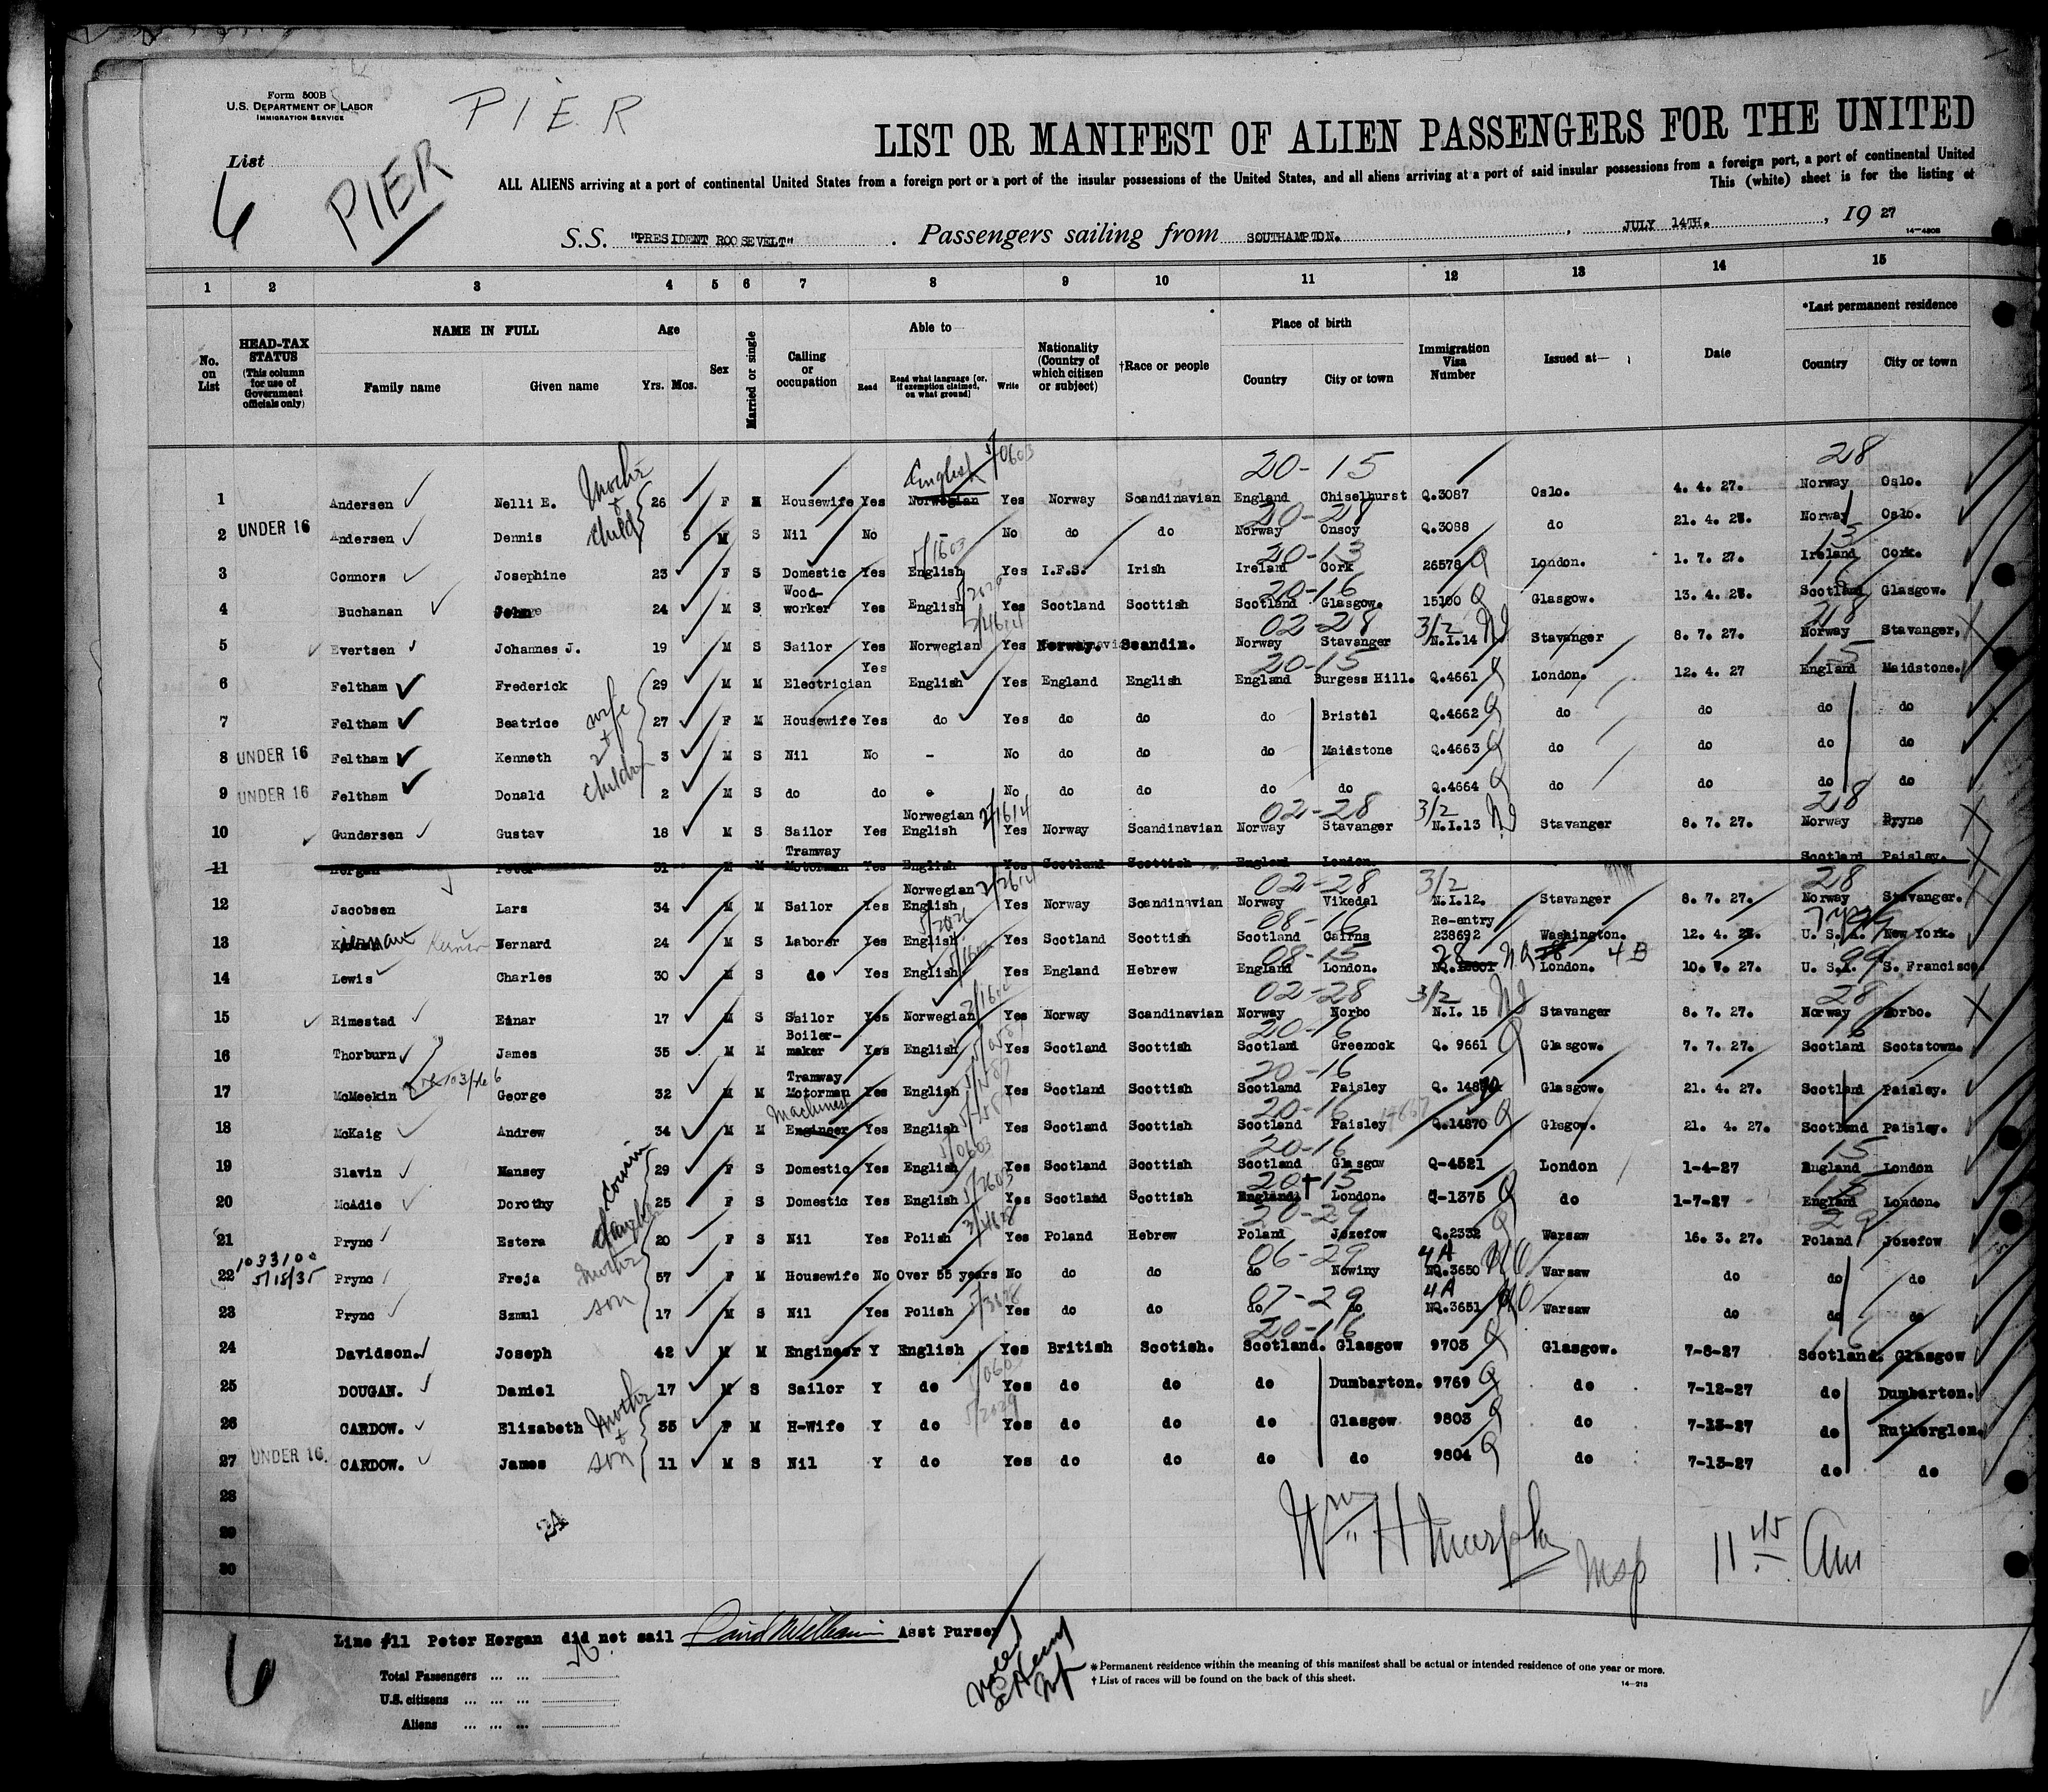 Form 500B
U.S. DEPARTMENT OF LABOR
IMMIGRATION SERVICE
PIER
List
6
PIER
LIST OR MANIFEST OF ALIEN PASSENGERS FOR THE UNITED
ALL ALIENS arriving at a port of continental United States from a foreign port or a port of the insular possessions of the United States, and all aliens arriving at a port of said insular possessions from a foreign port, a port of continental United
This (white) sheet is for the listing of
S.S. "PRESIDENT ROOSEVELT" . Passengers sailing from SOUTHAMPTON. , JULY 14TH. , 19 27
14-4808
1 2 3 4 5 6 7 8 9 10 11 12 13 14 15
No. on List
HEAD-TAX STATUS (This column for use of Government officials only)
NAME IN FULL
Family name Given name
Age
Yrs. Mos.
Sex
Married or single
Calling or occupation
Able to
Read Read what language [or, if exemption claimed, on what ground] Write
Nationality (Country of which citizen or subject)
†Race or people
Place of birth
Country City or town
Immigration Visa Number
Issued at—
Date
*Last permanent residence
Country City or town
20-15 28
1 Andersen Nelli E. Mother 26 F M Housewife Yes English Norwegian Yes Norway Scandinavian England Chiselhurst Q.3087 Oslo. 4. 4. 27. Norway Oslo.
20-28
2 UNDER 16 Andersen Dennis child 5 M S Nil No - No do do Norway Onsoy Q.3088 do 21. 4. 27. Norway Oslo.
20-13
3 Connors Josephine 23 F S Domestic Yes English Yes I.F.S. Irish Ireland Cork 26578 Q London. 1. 7. 27. Ireland Cork.
20-16
4 Buchanan 24 M S Wood-worker Yes English Yes Scotland Scottish Scotland Glasgow. 15100 Q Glasgow. 13. 4. 27. Scotland Glasgow.
02-28 3/2 28
5 Evertsen Johannes J. 19 M S Sailor Yes Norwegian Yes Norway. Scandin. Norway Stavanger N.I.14 Stavanger 8. 7. 27. Norway Stavanger.
20-15 15
6 Feltham Frederick 29 M M Electrician Yes English Yes England English England Burgess Hill. Q.4661 London. 12. 4. 27 England Maidstone.
7 Feltham Beatrice wife 27 F M Housewife Yes do Yes do do do Bristol Q.4662 do do do do
8 UNDER 16 Feltham Kenneth + 2 3 M S Nil No - No do do do Maidstone Q.4663 do do do do
9 UNDER 16 Feltham Donald children 2 M S do do No do do do do Q.4664 do do do do
02-28 3/2 28
10 Gundersen Gustav 18 M S Sailor Yes Norwegian English Yes Norway Scandinavian Norway Stavanger N.I.13 Stavanger 8. 7. 27. Norway Bryne
11 Horgan Peter 31 M M Tramway Motorman Yes English Yes Scotland Scottish England London. Scotland Paisley.
02-28 3/2 28
12 Jacobsen Lars 34 M M Sailor Yes Norwegian English Yes Norway Scandinavian Norway Vikedal N.I.12. Stavanger 8. 7. 27. Norway Stavanger.
08-16
13 Bernard 24 M S Laborer Yes English Yes Scotland Scottish Scotland Cairns Re-entry 238692 Washington. 12. 4. U. S. A. New York.
08-15 4B 99
14 Lewis Charles 30 M S do Yes English Yes England Hebrew England London. London. U. S. A. S. Francisco.
02-28 3/2 28
15 Rimestad Einar 17 M S Sailor Yes Norwegian Yes Norway Scandinavian Norway Norbo N.I. 15 Stavanger 8. 7. 27. Norway Norbo.
20-16 16
16 Thorburn James 35 M M Boiler-maker Yes English Yes Scotland Scottish Scotland Greenock Q. 9661 Glasgow. 7. 7. 27. Scotland Scotstown.
20-16
17 McMeekin George 32 M M Tramway Motorman Yes English Yes Scotland Scottish Scotland Paisley Glasgow. 21. 4. 27. Scotland Paisley.
20-16
18 McKaig Andrew 34 M M Machinest Engineer Yes English Yes Scotland Scottish Scotland Paisley Q.14870 Glsgow. 21. 4. 27. Scotland Paisley.
20-16 15
19 Slavin Nansey cousin 29 F S Domestic Yes English Yes Scotland Scottish Scotland Glasgow Q-4521 London 1-4-27 England London
20-15 15
20 McAdie Dorothy 25 F S Domestic Yes English Yes Scotland Scottish England London. Q-1375 do 1-7-27 England London.
20-29 29
21 Prync Estera daughter 20 F S Nil Yes Polish Yes Poland Hebrew Poland Jozefow Q.2332 Warsaw 16. 3. 27. Poland Jozefow
06-29 4A
22 5/15/35 Prync Freja mother 57 F M Housewife No Over 55 years No do do do Nowiny NQ.3650 Warsaw do do do
07-29 4A
23 Prync Szmul son 17 M S Nil Yes Polish Yes do do do do NQ.3651 Warsaw do do do
20-16 16
24 Davidson. Joseph 42 M M Engineer Y English Yes British Scotish. Scotland. Glasgow 9703 Glasgow. 7-8-27 Scotland. Glasgow
25 DOUGAN. Daniel 17 M S Sailor Y do Yes do do do Dumbarton. 9769 do 7-12-27 do Dumbarton.
26 CARDOW. Elizabeth Mother 35 F M H-Wife Y do Yes do do do Glasgow 9803 do 7-13-27 do Rutherglen.
27 UNDER 16. CARDOW. James + son 11 M S Nil Y do Yes do do do do 9804 do 7-13-27 do do
28
29
30
24
Wm H Murphy
11 45 Am
Line #11 Peter Horgan did not sail Asst Purser
6
Total Passengers ... ...
U.S. citizens ... ... ...
Aliens ... ... ...
* Permanent residence within the meaning of this manifest shall be actual or intended residence of one year or more.
† List of races will be found on the back of this sheet.
14-213